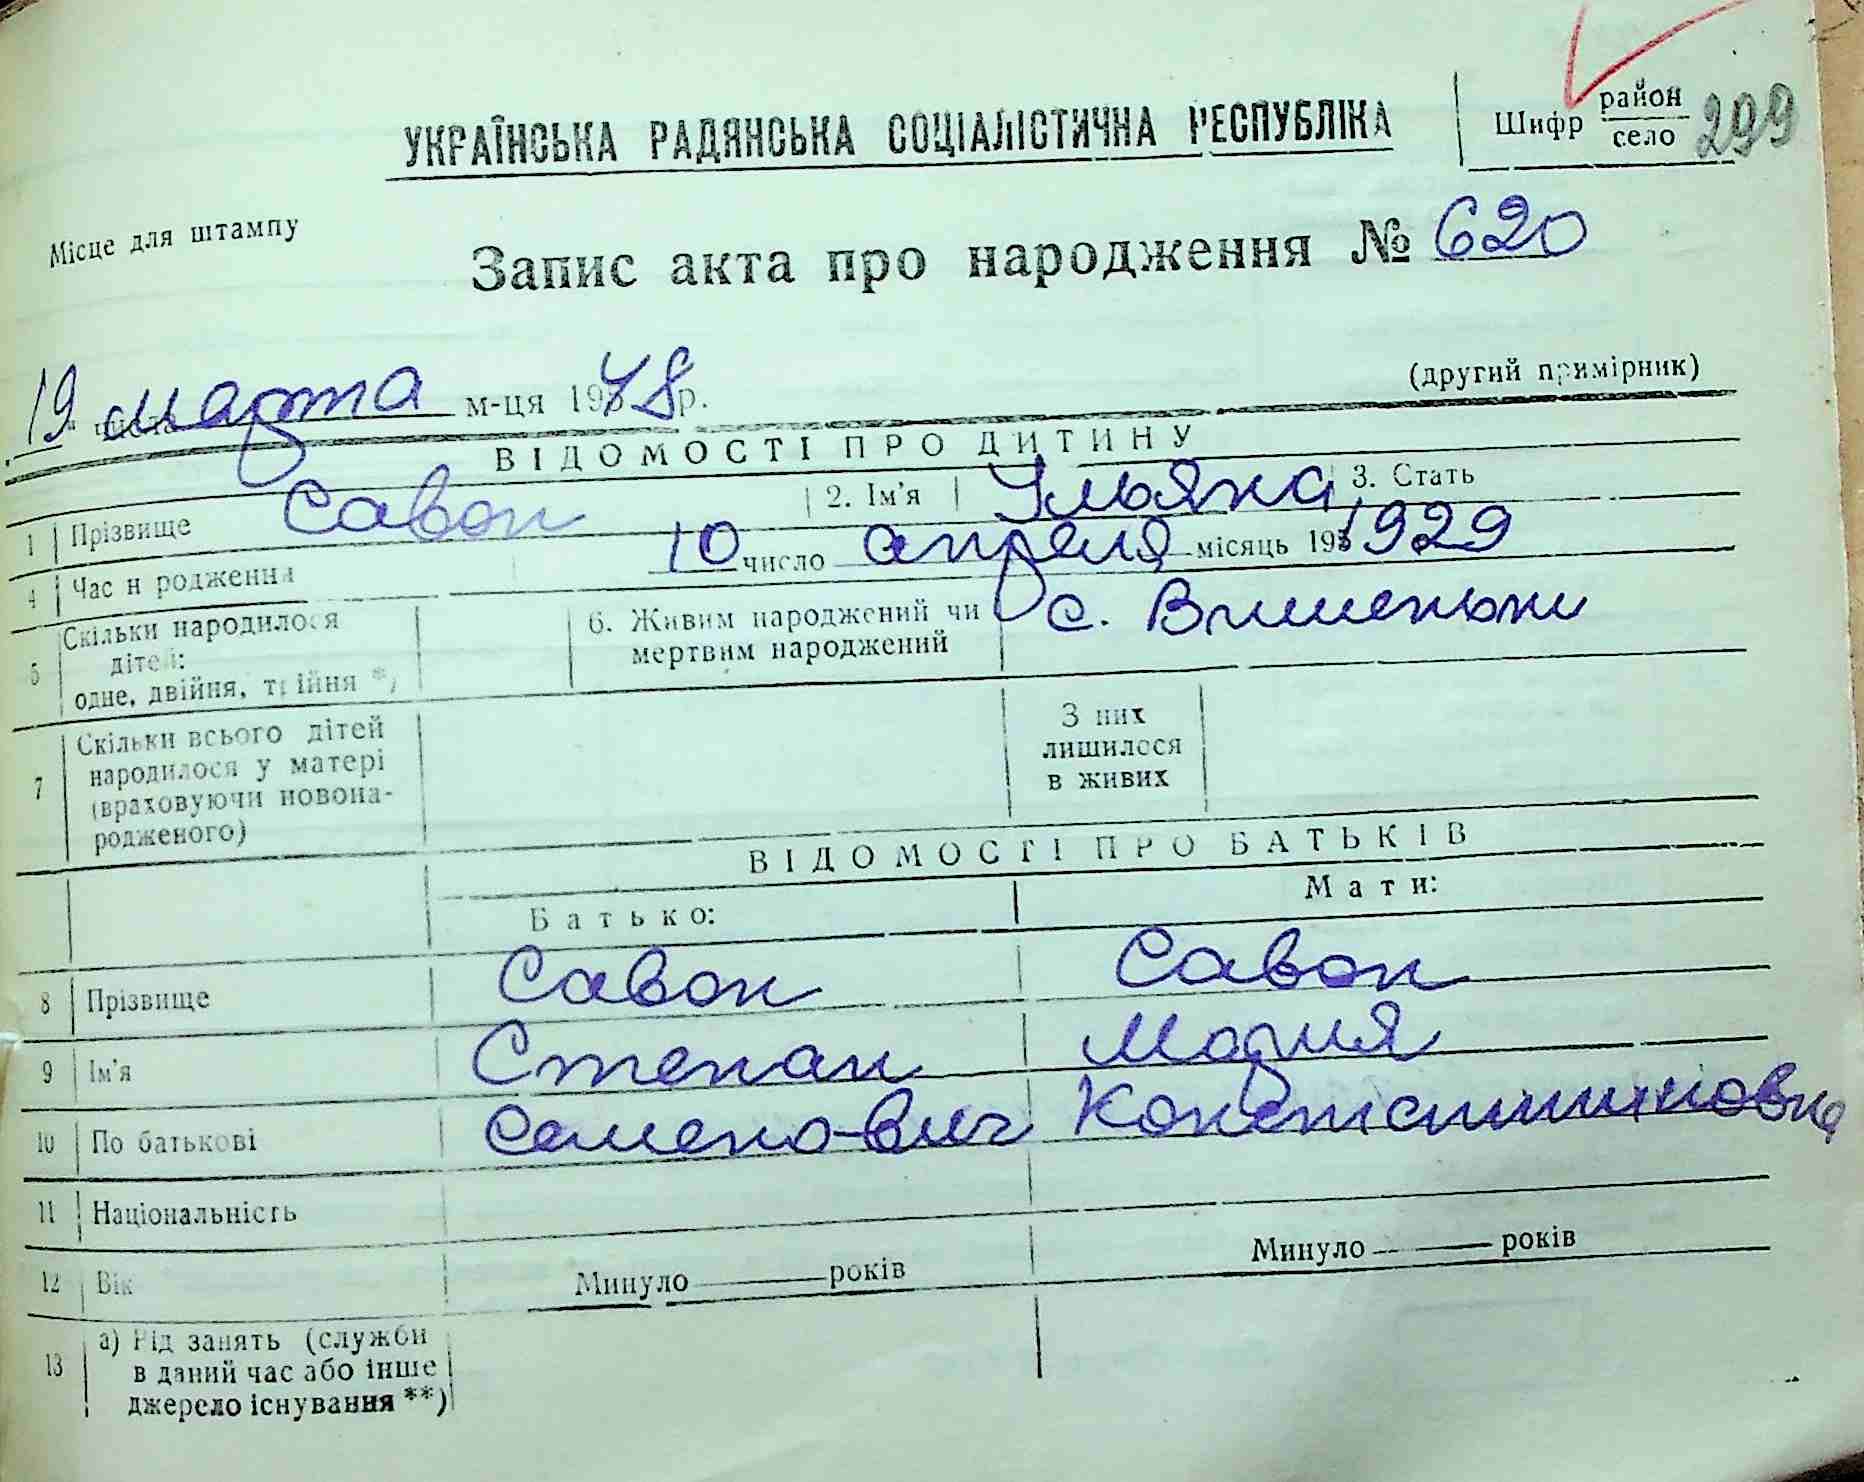 УКРАЇНСЬКА РАДЯНСЬКА СОЦІАЛІСТИЧНА РЕСПУБЛІКА
Шифр район село 299
Місце для штампу
Запис акта про народження № 620
19 марта м-ця 1948 р.
(другий примірник)
ВІДОМОСТІ ПРО ДИТИНУ
1 Прізвище Савон 2. Ім'я Ульяна 3. Стать
4 Час народження 10 число апреля місяць 193 1929
5 Скільки народилося дітей: одне, двійня, трійня *) 6. Живим народжений чи мертвим народжений с. Вишеньки
7 Скільки всього дітей народилося у матері (враховуючи новонародженого) З них лишилося в живих
ВІДОМОСТІ ПРО БАТЬКІВ
Батько: Мати:
8 Прізвище Савон Савон
9 Ім'я Степан Мария
10 По батькові Семенович Константиновна
11 Національність
12 Вік Минуло років Минуло років
13 а) Рід занять (служби
в даний час або інше
джерело існування **)